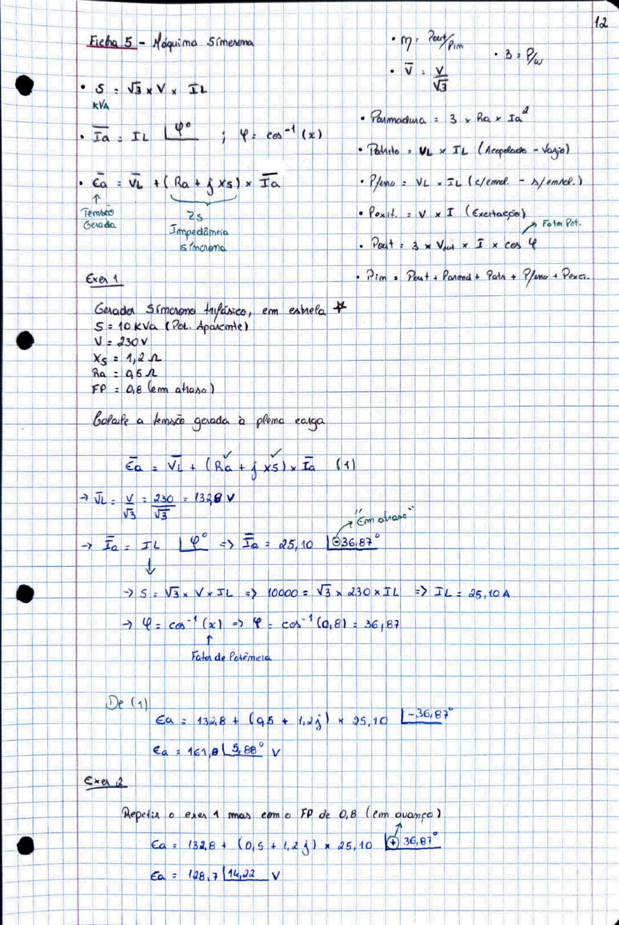 12
Ficha 5 - Máquina Síncrona
• S = √3 x V x IL
KVA
• Īa = IL ∠φ° ; φ = cos⁻¹ (x)
• Ēa = V̄L + (Ra + j Xs) x Īa
Tensão Gerada
Zs
Impedância
síncrona
• η = Pout/Pin
• V̄ = V/√3
• Z = P/ω
• Parmadura = 3 x Ra x Ia²
• Patrito = VL x IL (Acopolado - Vazio)
• Pferro = VL x IL (c/enrol. - s/enrol.)
• Pexit. = V x I (Excitação)
Fator Pot.
• Pout = 3 x V x I x cos φ
• Pin = Pout + Parmad + Patr + Pferro + Pexci.
Exer 1
Gerador Síncrono trifásico, em estrela ☆
S = 10 KVa (Pot. Aparente)
V = 230 V
Xs = 1,2 Ω
Ra = 0,5 Ω
FP = 0,8 (em atraso)
Calcule a tensão gerada à plena carga
Ēa = V̄L + (Ra + j Xs) x Īa (1)
→ V̄L = V/√3 = 230/√3 = 132,8 V
"Em atraso"
→ Īa = IL ∠φ° => Īa = 25,10 ∠-36,87°
→ S = √3 x V x IL => 10000 = √3 x 230 x IL => IL = 25,10 A
→ φ = cos⁻¹ (x) => φ = cos⁻¹ (0,8) = 36,87
Fator de Potência
De (1)
Ea = 132,8 + (0,5 + 1,2 j) x 25,10 ∠-36,87°
Ea = 161,8 ∠5,88° V
Exer 2
Repetir o exer 1 mas com o FP de 0,8 (em avanço)
Ea = 132,8 + (0,5 + 1,2 j) x 25,10 ∠+36,87°
Ea = 128,7 ∠14,22 V